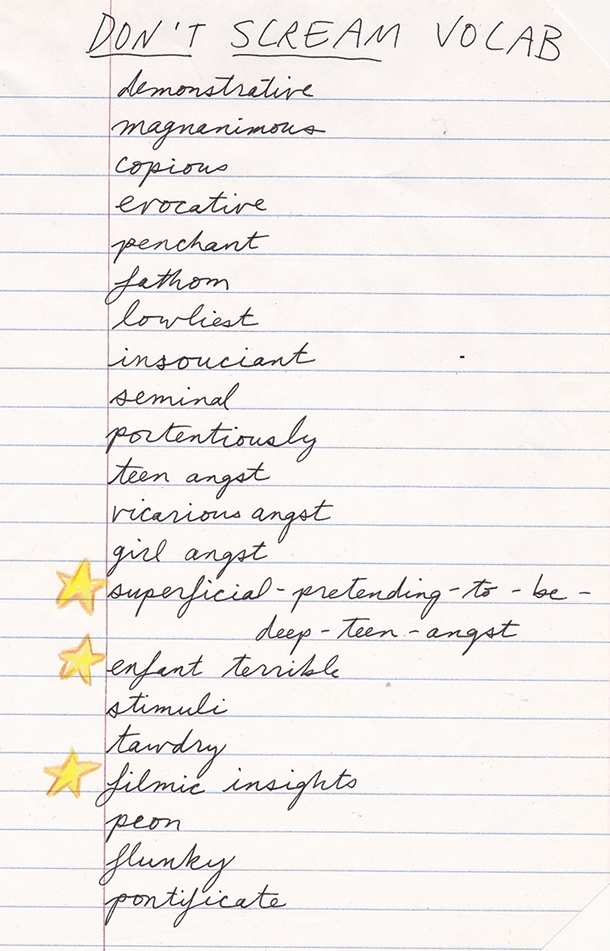 DON'T SCREAM VOCAB
demonstrative
magnanimous
copious
evocative
penchant
fathom
lowliest
insouciant
seminal
portentiously
teen angst
vicarious angst
girl angst
superficial-pretending-to-be-
deep-teen-angst
enfant terrible
stimuli
tawdry
filmic insights
peon
flunky
pontificate